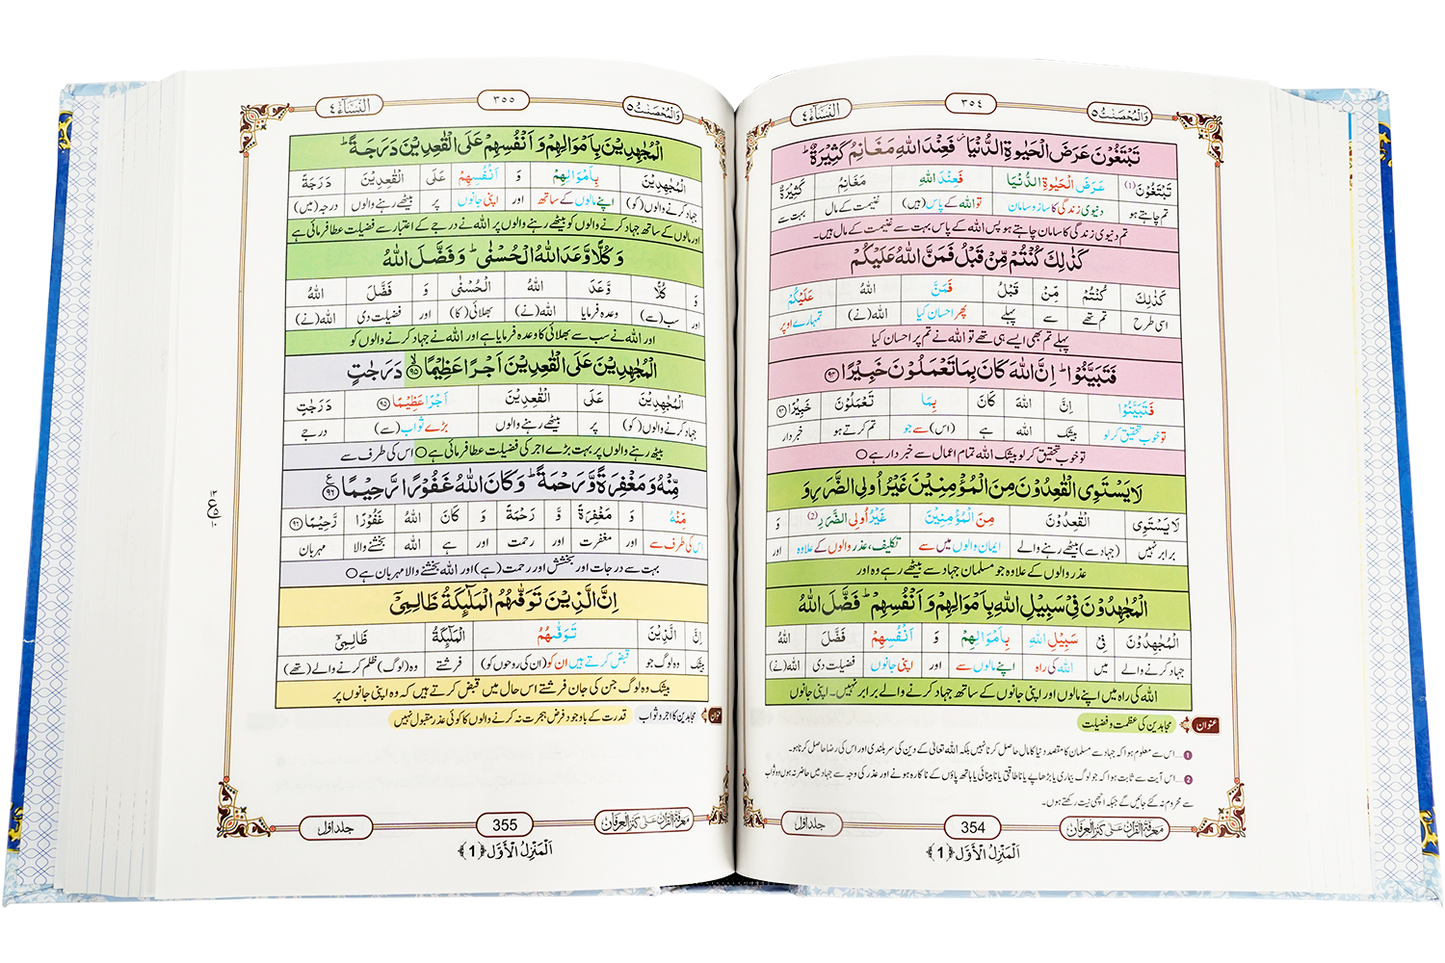 وَالْمُحْصَنٰتُ ٥
٣٥٤
النِّسَآءُ ٤
تَبْتَغُوْنَ عَرَضَ الْحَيٰوةِ الدُّنْيَا ۫ فَعِنْدَ اللّٰهِ مَغَانِمُ كَثِيْرَةٌ ؕ
تَبْتَغُوْنَ (1) عَرَضَ الْحَيٰوةِ الدُّنْيَا فَعِنْدَ اللّٰهِ مَغَانِمُ كَثِيْرَةٌ
تم چاہتے ہو دنیوی زندگی کا ساز و سامان تو اللہ کے پاس (ہیں) غنیمت کے مال بہت سے
تم دنیوی زندگی کا سامان چاہتے ہو پس اللہ کے پاس بہت سے غنیمت کے مال ہیں۔
كَذٰلِكَ كُنْتُمْ مِّنْ قَبْلُ فَمَنَّ اللّٰهُ عَلَيْكُمْ
كَذٰلِكَ كُنْتُمْ مِّنْ قَبْلُ فَمَنَّ اللّٰهُ عَلَيْكُمْ
اسی طرح تم تھے سے پہلے پھر احسان کیا اللہ (نے) تمہارے اوپر
پہلے تم بھی ایسے ہی تھے تو اللہ نے تم پر احسان کیا
فَتَبَيَّنُوْا ؕ اِنَّ اللّٰهَ كَانَ بِمَا تَعْمَلُوْنَ خَبِيْرًا ﴿٩٤﴾
فَتَبَيَّنُوْا اِنَّ اللّٰهَ كَانَ بِمَا تَعْمَلُوْنَ خَبِيْرًا ﴿٩٤﴾
تو خوب تحقیق کر لو بیشک اللہ ہے (اس) سے جو تم کرتے ہو خبردار
تو خوب تحقیق کر لو بیشک اللہ تمام اعمال سے خبردار ہے ○
لَا يَسْتَوِى الْقٰعِدُوْنَ مِنَ الْمُؤْمِنِيْنَ غَيْرُ اُولِى الضَّرَرِ وَ
لَا يَسْتَوِى الْقٰعِدُوْنَ مِنَ الْمُؤْمِنِيْنَ غَيْرُ اُولِى الضَّرَرِ (2) وَ
برابر نہیں (جہاد سے) بیٹھے رہنے والے ایمان والوں میں سے تکلیف، عذر والوں کے علاوہ اور
عذر والوں کے علاوہ جو مسلمان جہاد سے بیٹھے رہے وہ اور
الْمُجٰهِدُوْنَ فِىْ سَبِيْلِ اللّٰهِ بِاَمْوَالِهِمْ وَ اَنْفُسِهِمْ ؕ فَضَّلَ اللّٰهُ
الْمُجٰهِدُوْنَ فِىْ سَبِيْلِ اللّٰهِ بِاَمْوَالِهِمْ وَ اَنْفُسِهِمْ فَضَّلَ اللّٰهُ
جہاد کرنے والے میں اللہ کی راہ اپنے مالوں سے اور اپنی جانوں فضیلت دی اللہ (نے)
اللہ کی راہ میں اپنے مالوں اور اپنی جانوں کے ساتھ جہاد کرنے والے برابر نہیں۔ اپنی جانوں
عنوان مجاہدین کی عظمت و فضیلت
1 ...اس سے معلوم ہوا کہ جہاد سے مسلمان کا مقصد دنیا کا مال حاصل کرنا نہیں بلکہ اللہ تعالیٰ کے دین کی سربلندی اور اس کی رضا حاصل کرنا ہو۔
2 ...اس آیت سے ثابت ہوا کہ جو لوگ بیماری یا بڑھاپے یا ناطاقتی یا نابینائی یا ہاتھ پاؤں کے ناکارہ ہونے اور عذر کی وجہ سے جہاد میں حاضر نہ ہوں وہ ثواب
سے محروم نہ کئے جائیں گے جبکہ اچھی نیت رکھتے ہوں۔
معرفۃ القرآن علیٰ کنز العرفان
354
جلد اوّل
اَلْمَنْزِلُ الْاَوَّل ﴿1﴾
وَالْمُحْصَنٰتُ ٥
٣٥٥
النِّسَآءُ ٤
الْمُجٰهِدِيْنَ بِاَمْوَالِهِمْ وَ اَنْفُسِهِمْ عَلَى الْقٰعِدِيْنَ دَرَجَةً ؕ
الْمُجٰهِدِيْنَ بِاَمْوَالِهِمْ وَ اَنْفُسِهِمْ عَلَى الْقٰعِدِيْنَ دَرَجَةً
جہاد کرنے والوں (کو) اپنے مالوں کے ساتھ اور اپنی جانوں پر بیٹھے رہنے والوں درجہ (میں)
اور مالوں کے ساتھ جہاد کرنے والوں کو بیٹھے رہنے والوں پر اللہ نے درجے کے اعتبار سے فضیلت عطا فرمائی ہے
وَ كُلًّا وَّعَدَ اللّٰهُ الْحُسْنٰى ؕ وَ فَضَّلَ اللّٰهُ
وَ كُلًّا وَّعَدَ اللّٰهُ الْحُسْنٰى وَ فَضَّلَ اللّٰهُ
اور سب (سے) وعدہ فرمایا اللہ (نے) بھلائی (کا) اور فضیلت دی اللہ (نے)
اور اللہ نے سب سے بھلائی کا وعدہ فرمایا ہے اور اللہ نے جہاد کرنے والوں کو
الْمُجٰهِدِيْنَ عَلَى الْقٰعِدِيْنَ اَجْرًا عَظِيْمًا ﴿٩٥﴾ دَرَجٰتٍ
الْمُجٰهِدِيْنَ عَلَى الْقٰعِدِيْنَ اَجْرًا عَظِيْمًا ﴿٩٥﴾ دَرَجٰتٍ
جہاد کرنے والوں (کو) پر بیٹھے رہنے والوں بڑے ثواب (سے) درجے
بیٹھ رہنے والوں پر بہت بڑے اجر کی فضیلت عطا فرمائی ہے ○ اس کی طرف سے
مِّنْهُ وَ مَغْفِرَةً وَّ رَحْمَةً ؕ وَ كَانَ اللّٰهُ غَفُوْرًا رَّحِيْمًا ﴿٩٦﴾
مِّنْهُ وَ مَغْفِرَةً وَّ رَحْمَةً وَ كَانَ اللّٰهُ غَفُوْرًا رَّحِيْمًا ﴿٩٦﴾
اس کی طرف سے اور مغفرت اور رحمت اور ہے اللہ بخشنے والا مہربان
بہت سے درجات اور بخشش اور رحمت (ہے) اور اللہ بخشنے والا مہربان ہے ○
اِنَّ الَّذِيْنَ تَوَفّٰىهُمُ الْمَلٰٓىِٕكَةُ ظَالِمِىْۤ
اِنَّ الَّذِيْنَ تَوَفّٰىهُمُ الْمَلٰٓىِٕكَةُ ظَالِمِىْۤ
بیشک وہ لوگ جو قبض کرتے ہیں ان کو (ان کی روحوں کو) فرشتے وہ (لوگ) ظلم کرنے والے (تھے)
بیشک وہ لوگ جن کی جان فرشتے اس حال میں قبض کرتے ہیں کہ وہ اپنی جانوں پر
مجاہدین کا اجر و ثواب قدرت کے باوجود فرض ہجرت نہ کرنے والوں کا کوئی عذر مقبول نہیں
معرفۃ القرآن علیٰ کنز العرفان
355
جلد اوّل
اَلْمَنْزِلُ الْاَوَّل ﴿1﴾